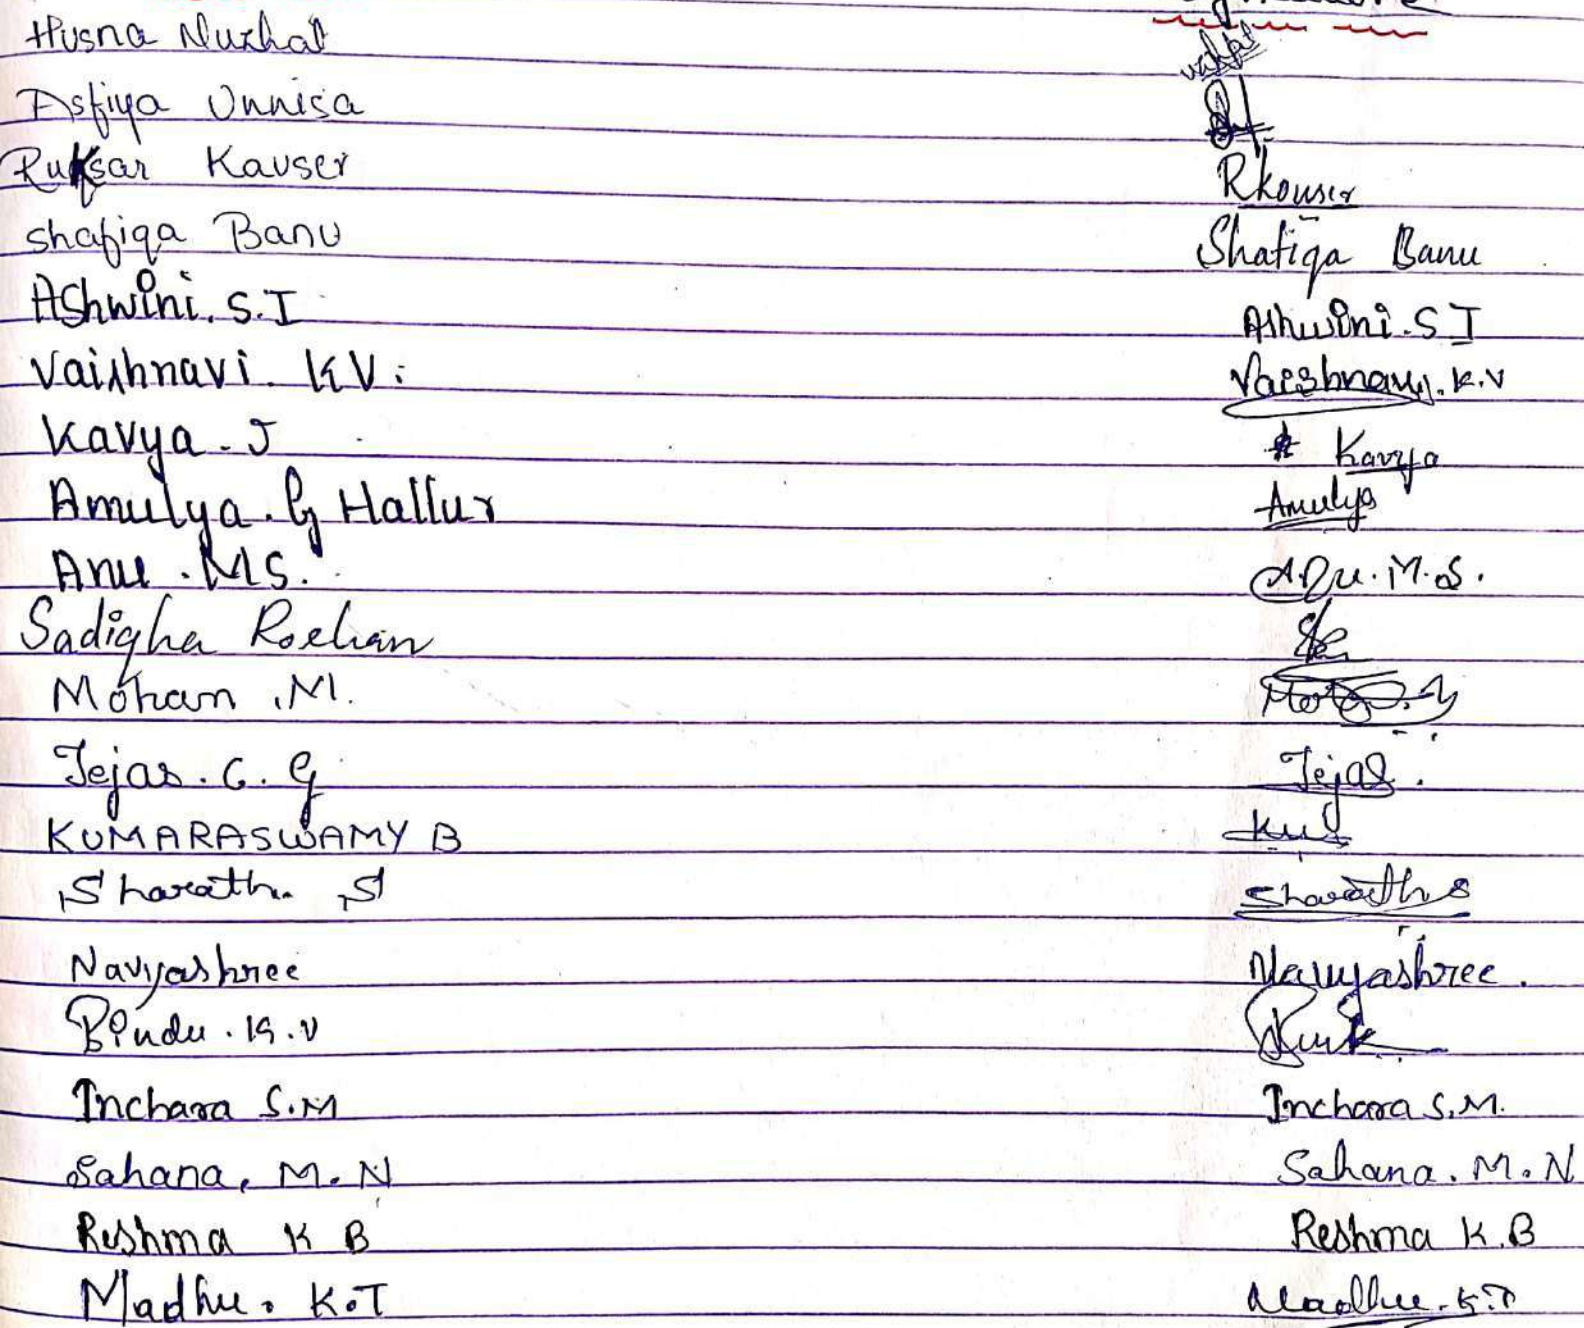 Husna Nuzhat
Asfiya Unnisa
Ruksar Kauser RKouser
Shafiqa Banu Shafiqa Banu
AShwini. S.I Ashwini. S I
Vaishnavi. K V. Vaishnavi. K.V
Kavya. J Kavya
Amulya. G Hallur Amulya
Anu. MS. Anu. M. S.
Sadiqha Roshan
Mohan .M.
Tejas. C. G Tejas.
KUMARASWAMY B
Sharath. S Sharath S
Navyashree Navyashree.
Bindu. K.V
Inchara S.M Inchara S.M.
Sahana. M. N Sahana. M. N
Reshma K B Reshma K.B
Madhu. K.T Madhu. K.T